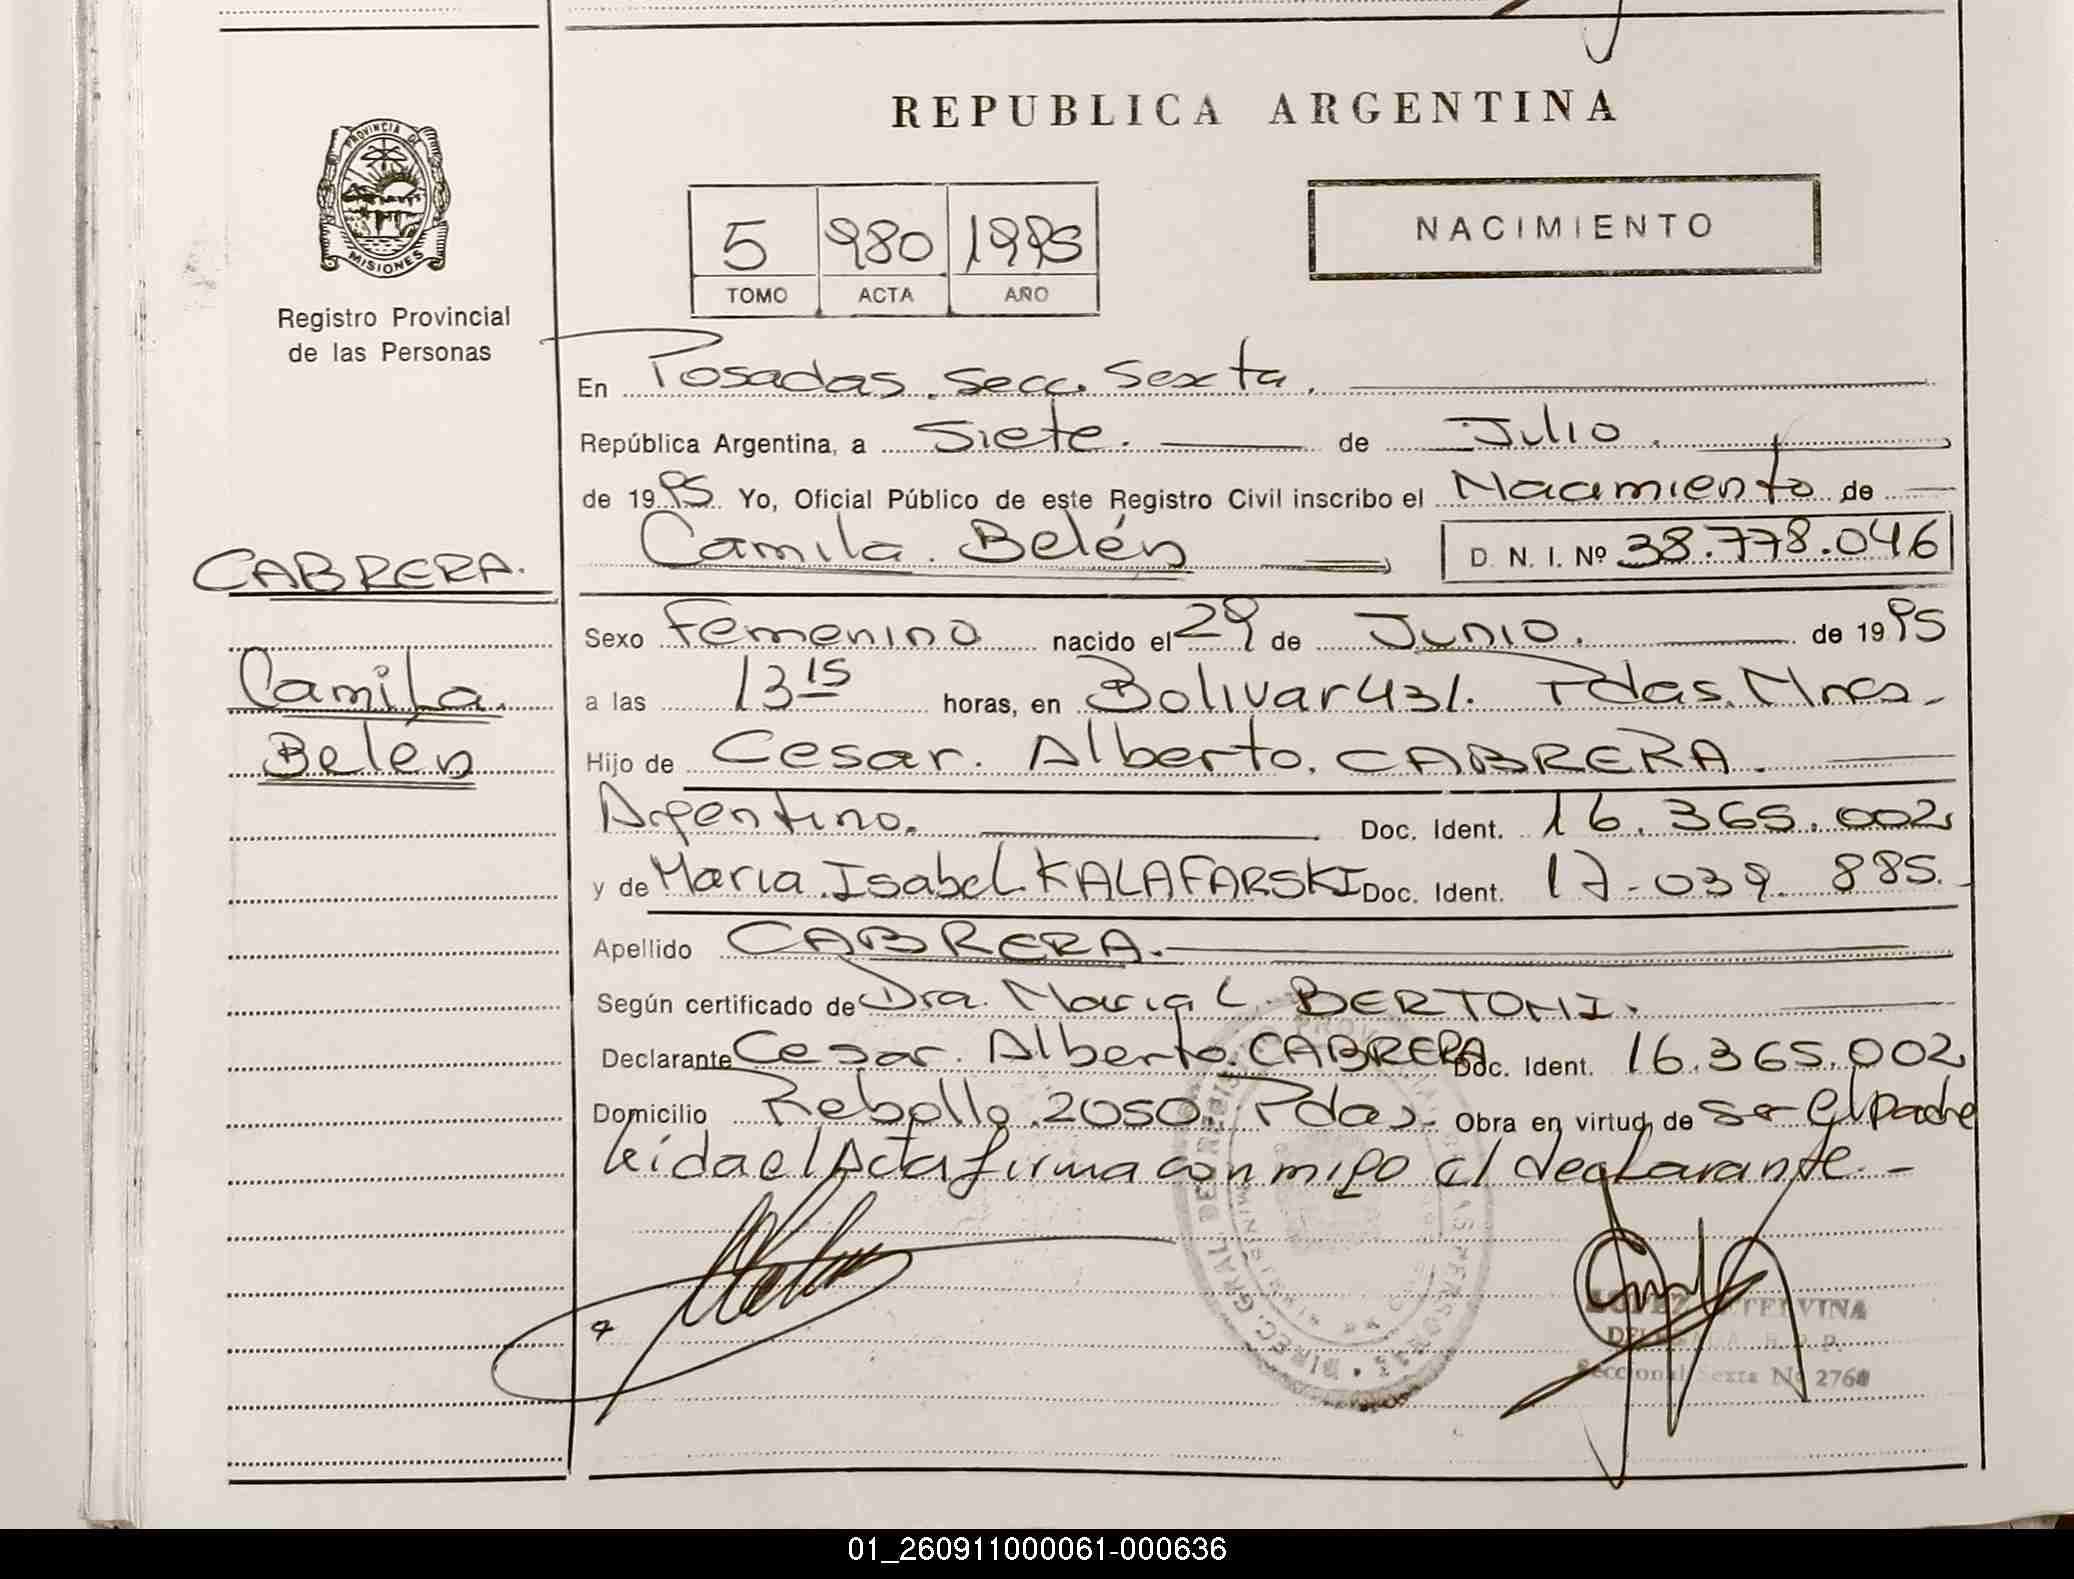 REPUBLICA ARGENTINA
PROVINCIA DE
MISIONES
Registro Provincial
de las Personas
NACIMIENTO
5 980 1995
TOMO ACTA AÑO
En Posadas. Secc. Sexta.
República Argentina, a Siete. de Julio.
de 1995. Yo, Oficial Público de este Registro Civil inscribo el Nacimiento de
Camila Belén D. N. I. Nº 38.778.046
CABRERA.
Camila
Belén
Sexo Femenino nacido el 29 de Junio. de 1995
a las 13 15 horas, en Bolivar 431. Pdas. Mnes.
Hijo de Cesar. Alberto. CABRERA.
Argentino. Doc. Ident. 16.365.002
y de Maria Isabel KALAFARSKI Doc. Ident. 17.039.885.
Apellido CABRERA.
Según certificado de Dra. Maria L BERTONI.
Declarante Cesar. Alberto. CABRERA Doc. Ident. 16.365.002
Domicilio Rebollo 2050. Pdas. Obra en virtud de ser el padre
leida el Acta firma conmigo el declarante.-
DIREC. GRAL DE REGISTRO PROV.
Seccional Sexta Nº 2760
01_260911000061-000636